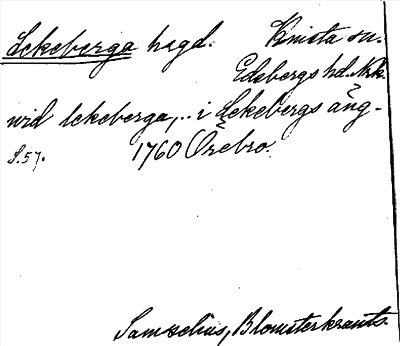 Lekeberga hagd. Knista sn.
Edsbergs hd. Nrk.
wid lekeberga,.. i Lekebergs äng-
S. 57. 1760 Örebro.
Samzelius, Blomsterkrants.